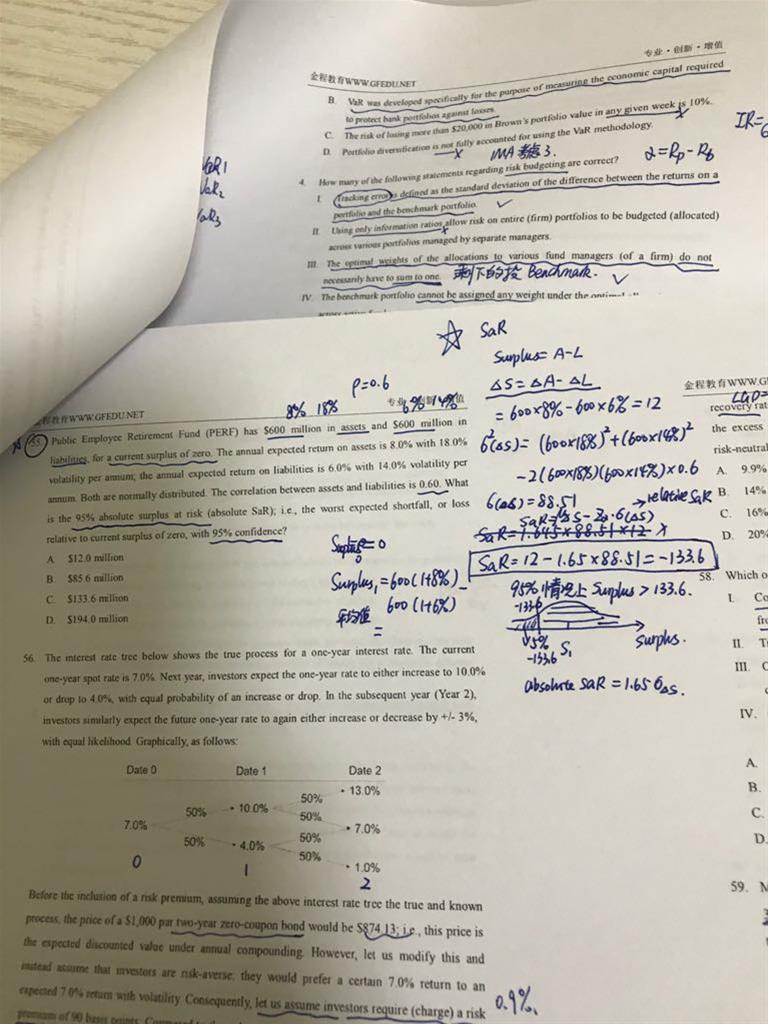 专业·创新·增值
金程教育WWW.GFEDU.NET
B. VaR was developed specifically for the purpose of measuring the economic capital required
to protect bank portfolios against losses.
C. The risk of losing more than $20,000 in Brown's portfolio value in any given week is 10%.
D. Portfolio diversification is not fully accounted for using the VaR methodology.
IR=
VaR1
VaR2
VaR3
α=Rp-RB
4. How many of the following statements regarding risk budgeting are correct?
I. Tracking error is defined as the standard deviation of the difference between the returns on a
portfolio and the benchmark portfolio.
II. Using only information ratios allow risk on entire (firm) portfolios to be budgeted (allocated)
across various portfolios managed by separate managers.
III. The optimal weights of the allocations to various fund managers (of a firm) do not
necessarily have to sum to one. 剩下的投 Benchmark.
IV. The benchmark portfolio cannot be assigned any weight under the
SaR
Surplus=A-L
ΔS=ΔA-ΔL
=600×8%-600×6%=12
б²(ΔS)=(600×18%)²+(600×14%)²
-2(600×18%)(600×14%)×0.6
б(ΔS)=88.51
→relative SaR
SaR=1.645×88.51×12 ×
SaR=12-1.65×88.51=-133.6
95%情况上 Surplus>133.6.
-133.6
5%
-133.6
S1
Surplus.
absolute SaR=1.65бΔS.
ρ=0.6
8% 18%
6% 14%
WWW.GFEDU.NET
55. Public Employee Retirement Fund (PERF) has $600 million in assets and $600 million in
liabilities, for a current surplus of zero. The annual expected return on assets is 8.0% with 18.0%
volatility per annum; the annual expected return on liabilities is 6.0% with 14.0% volatility per
annum. Both are normally distributed. The correlation between assets and liabilities is 0.60. What
is the 95% absolute surplus at risk (absolute SaR); i.e., the worst expected shortfall, or loss
relative to current surplus of zero, with 95% confidence?
A. $12.0 million
B. $85.6 million
C. $133.6 million
D. $194.0 million
Surplus0=0
Surplus1=600(1+8%)-
600(1+6%)
平均值
=
56. The interest rate tree below shows the true process for a one-year interest rate. The current
one-year spot rate is 7.0%. Next year, investors expect the one-year rate to either increase to 10.0%
or drop to 4.0%, with equal probability of an increase or drop. In the subsequent year (Year 2),
investors similarly expect the future one-year rate to again either increase or decrease by +/- 3%,
with equal likelihood. Graphically, as follows:
Date 0 Date 1 Date 2
13.0%
50%
50% 10.0%
50%
7.0% 7.0%
50%
50% 4.0%
50%
1.0%
0 1 2
Before the inclusion of a risk premium, assuming the above interest rate tree the true and known
process, the price of a $1,000 par two-year zero-coupon bond would be $874.13; i.e., this price is
the expected discounted value under annual compounding. However, let us modify this and
instead assume that investors are risk-averse: they would prefer a certain 7.0% return to an
expected 7.0% return with volatility. Consequently, let us assume investors require (charge) a risk
premium of 90 basis points.
0.9%.
金程教育WWW.G
LGD=
recovery rat
the excess
risk-neutral
A. 9.9%
B. 14%
C. 16%
D. 20%
58. Which o
I. Co
fro
II. T
III. C
IV.
A.
B.
C.
D.
59. M